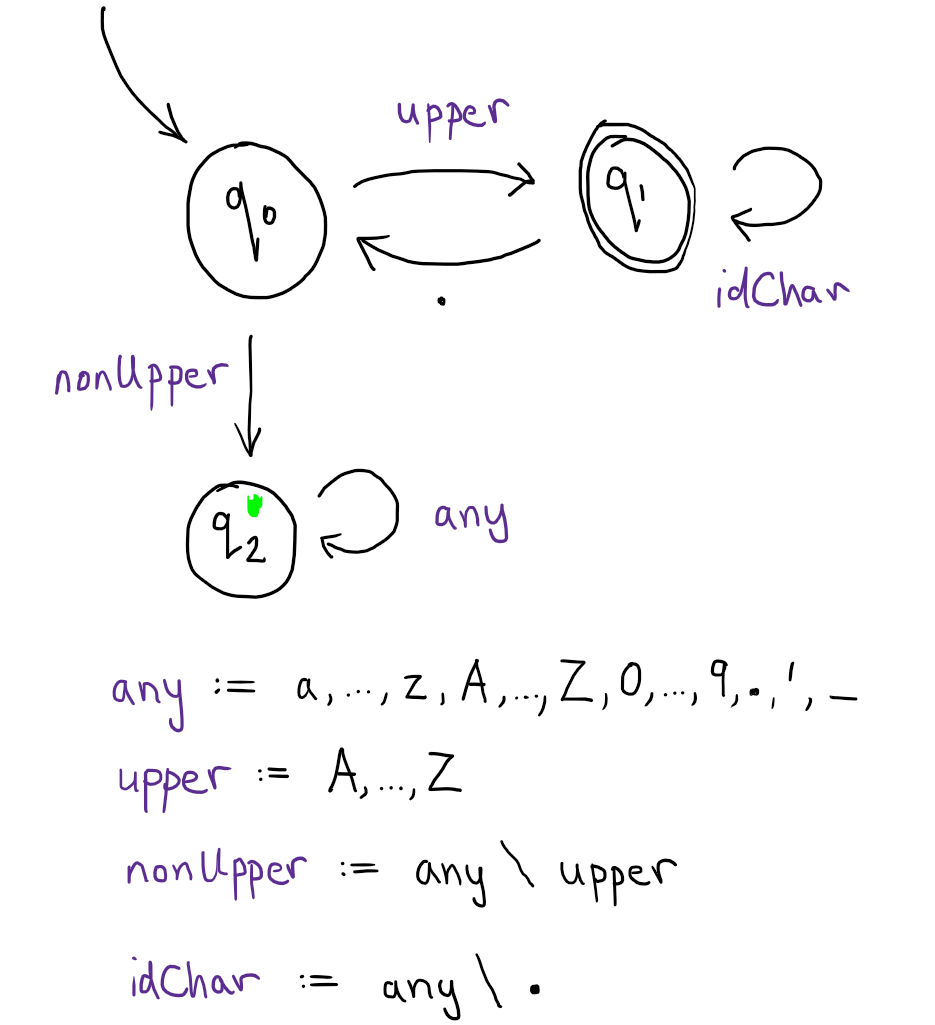 upper
q₀
q₁
idChar
.
nonUpper
q₂
any
any := a, ..., z, A, ..., Z, 0, ..., 9, ., ', _
upper := A, ..., Z
nonUpper := any \ upper
idChar := any \ .